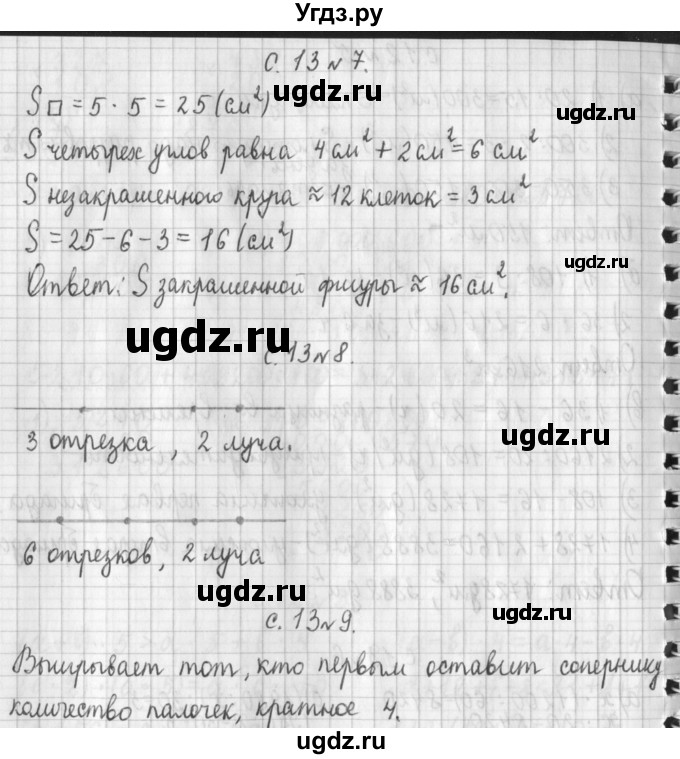 Угдз.ру
с. 13 № 7.
S□ = 5 · 5 = 25 (см²)
ugdz.ru
ugdz.ru
S четырех углов равна 4 см² + 2 см² = 6 см²
S незакрашенного круга ≈ 12 клеток = 3 см²
S = 25 - 6 - 3 = 16 (см²)
ugdz.ru
Ответ: S закрашенной фигуры ≈ 16 см².
ugdz.ru
с. 13 № 8.
3 отрезка, 2 луча.
ugdz.ru
6 отрезков, 2 луча
ugdz.ru
ugdz.ru
с. 13 № 9.
Выигрывает тот, кто первым оставит сопернику
количество палочек, кратное 4.
ugdz.ru